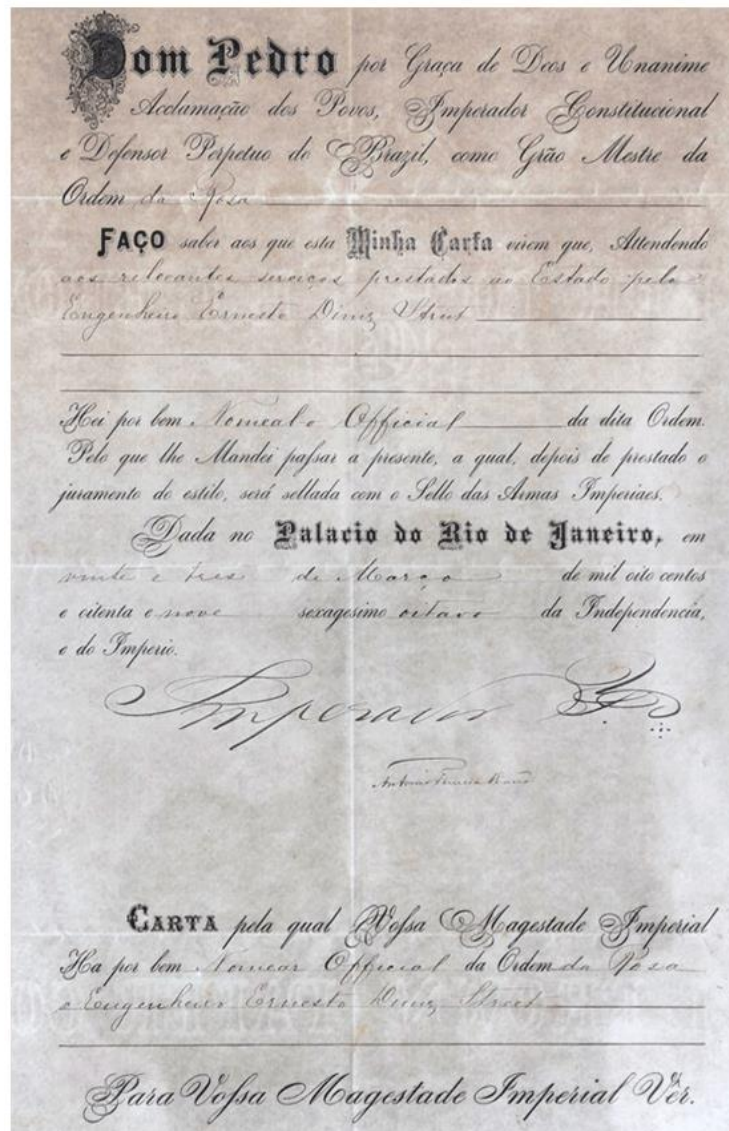 Dom Pedro por Graça de Deos e Unanime
Acclamação dos Povos, Imperador Constitucional
e Defensor Perpetuo do Brazil, como Grão Mestre da
Ordem da Rosa
FAÇO saber aos que esta Minha Carta virem que, Attendendo
aos relevantes serviços prestados ao Estado pelo
Engenheiro Ernesto Diniz Street
Hei por bem Nomeal-o Official da dita Ordem.
Pelo que lhe Mandei passar a presente, a qual, depois de prestado o
juramento do estilo, será sellada com o Sello das Armas Imperiaes.
Dada no Palacio do Rio de Janeiro, em
vinte e tres de Março de mil oito centos
e oitenta e nove sexagesimo oitavo da Independencia,
e do Imperio.
Imperador
Antonio Ferreira Vianna
CARTA pela qual Vossa Magestade Imperial
Ha por bem Nomear Official da Ordem da Rosa
o Engenheiro Ernesto Diniz Street
Para Vossa Magestade Imperial Vêr.